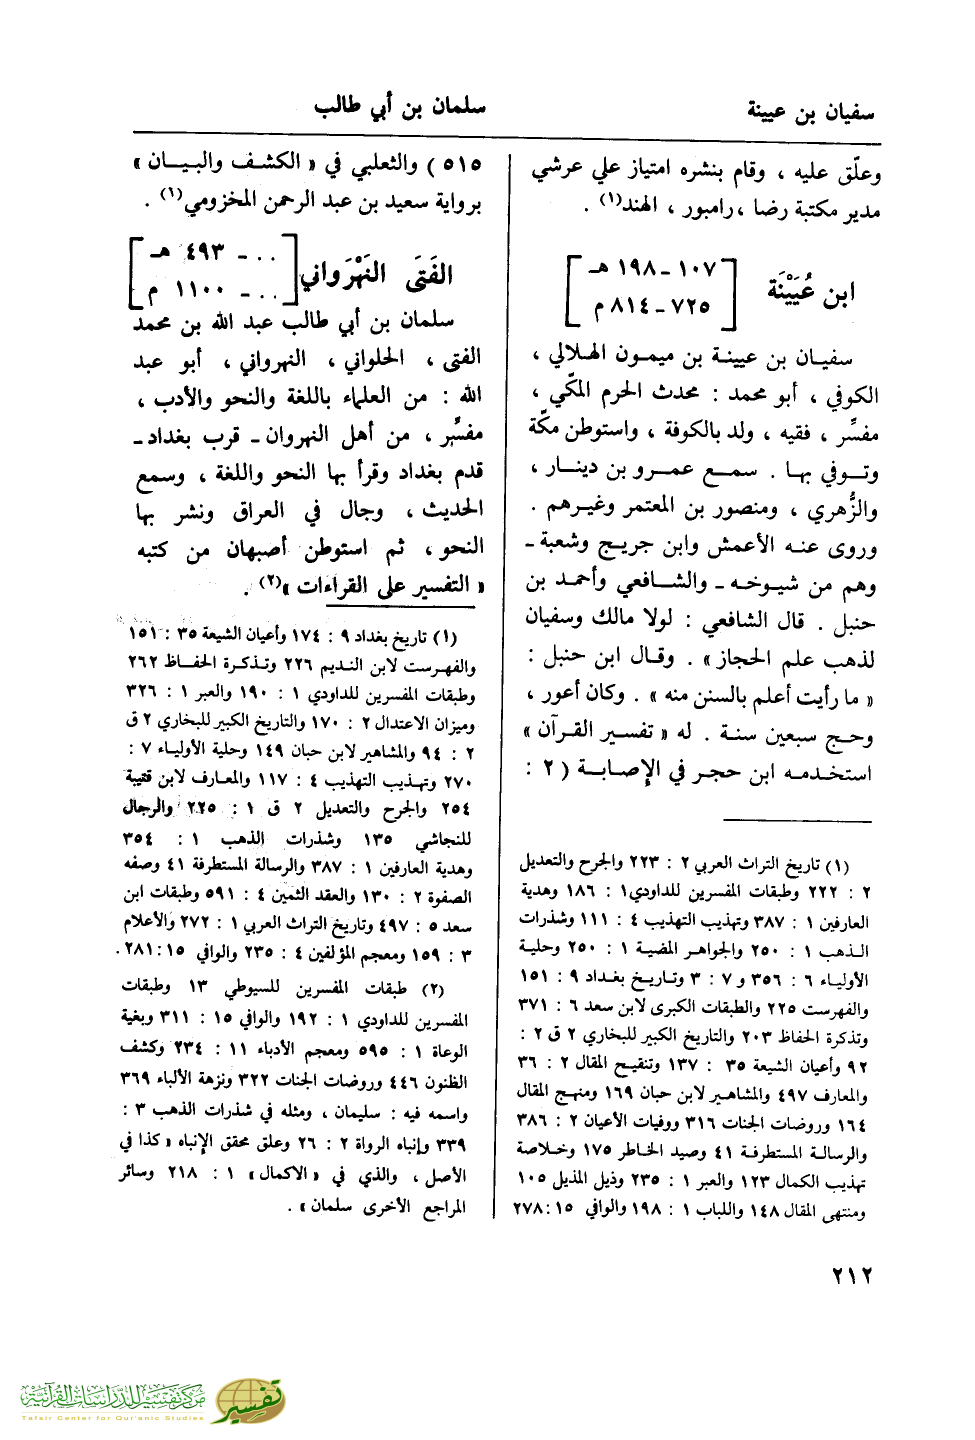 سفيان بن عيينة
سلمان بن أبي طالب
وعلّق عليه ، وقام بنشره امتياز علي عرشي
مدير مكتبة رضا ، رامبور ، الهند(١) .
ابن عُيَيْنَة
١٠٧ ـ ١٩٨ هـ
٧٢٥ ـ ٨١٤ م
سفيـان بن عيينـة بن ميمون الهـلالي ،
الكوفي ، أبو محمد : محدث الحرم المكّي ،
مفسِّر ، فقيه ، ولد بالكوفة ، واستوطن مكّة
وتـوفي بهـا . سمـع عمـرو بن دينـار ،
والزُّهري ، ومنصور بن المعتمر وغيرهم .
وروى عنـه الأعمش وابن جريـج وشعبة ـ
وهم من شيـوخـه ـ والشـافعي وأحمـد بن
حنبل . قال الشافعي : لولا مالك وسفيان
لذهب علم الحجاز » . وقـال ابن حنبل :
« ما رأيت أعلم بالسنن منه » . وكان أعور ،
وحـج سبعين سنـة . له « تفسـير القـرآن »
استخـدمـه ابن حجـر في الإصـابـة ( ٢ :
(١) تاريخ التراث العربي ٢ : ٢٢٣ والجرح والتعديل
٢ : ٢٢٢ وطبقات المفسرين للداودي ١ : ١٨٦ وهدية
العارفين ١ : ٣٨٧ وتهذيب التهذيب ٤ : ١١١ وشذرات
الـذهب ١ : ٢٥٠ والجواهـر المضية ١ : ٢٥٠ وحليـة
الأوليـاء ٦ : ٣٥٦ و ٧ : ٣ وتـاريـخ بغـداد ٩ : ١٥١
والفهرست ٢٢٥ والطبقات الكبرى لابن سعد ٦ : ٣٧١
وتذكرة الحفاظ ٢٠٣ والتاريخ الكبير للبخاري ٢ ق ٢ :
٩٢ وأعيان الشيعة ٣٥ : ١٣٧ وتنقيح المقال ٢ : ٣٦
والمعارف ٤٩٧ والمشاهـير لابن حبان ١٦٩ ومنهـج المقال
١٦٤ وروضات الجنات ٣١٦ ووفيات الأعيان ٢ : ٣٨٦
والرسالـة المستطرفـة ٤١ وصيد الخـاطر ١٧٥ وخـلاصة
تهذيب الكمال ١٢٣ والعبر ١ : ٢٣٥ وذيل المذيل ١٠٥
ومنتهى المقال ١٤٨ واللباب ١ : ١٩٨ والوافي ١٥ : ٢٧٨
٥١٥ ) والثعلبي في « الكشـف والبيـان »
برواية سعيد بن عبد الرحمن المخزومي(١) .
الفَتَى النَهْرَواني
... ـ ٤٩٣ هـ
... ـ ١١٠٠ م
سلمان بن أبي طالب عبد الله بن محمد
الفتى ، الحلواني ، النهرواني ، أبو عبد
الله : من العلماء باللغة والنحو والأدب ،
مفسِّر ، من أهل النهروان ـ قرب بغداد ـ
قدم بغداد وقرأ بها النحو واللغة ، وسمع
الحديث ، وجال في العراق ونشر بها
النحو ، ثم استوطن أصبهان من كتبه
« التفسير على القراءات »(٢) .
(١) تاريخ بغداد ٩ : ١٧٤ وأعيان الشيعة ٣٥ : ١٥١
والفهرست لابن النديم ٢٢٦ وتذكرة الحفاظ ٢٦٢
وطبقات المفسرين للداودي ١ : ١٩٠ والعبر ١ : ٣٢٦
وميزان الاعتدال ٢ : ١٧٠ والتاريخ الكبير للبخاري ٢ ق
٢ : ٩٤ والمشاهير لابن حبان ١٤٩ وحلية الأولياء ٧ :
٢٧٠ وتهذيب التهذيب ٤ : ١١٧ والمعارف لابن قتيبة
٢٥٤ والجرح والتعديل ٢ ق ١ : ٢٢٥ والرجال
للنجاشي ١٣٥ وشذرات الذهب ١ : ٣٥٤
وهدية العارفين ١ : ٣٨٧ والرسالة المستطرفة ٤١ وصفه
الصفوة ٢ : ١٣٠ والعقد الثمين ٤ : ٥٩١ وطبقات ابن
سعد ٥ : ٤٩٧ وتاريخ التراث العربي ١ : ٢٧٢ والأعلام
٣ : ١٥٩ ومعجم المؤلفين ٤ : ٢٣٥ والوافي ١٥ : ٢٨١ .
(٢) طبقات المفسرين للسيوطي ١٣ وطبقات
المفسرين للداودي ١ : ١٩٢ والوافي ١٥ : ٣١١ وبغية
الوعاة ١ : ٥٩٥ ومعجم الأدباء ١١ : ٢٣٤ وكشف
الظنون ٤٤٦ وروضات الجنات ٣٢٢ ونزهة الألباء ٣٦٩
واسمه فيه : سليمان ، ومثله في شذرات الذهب ٣ :
٣٣٩ وإنباه الرواة ٢ : ٢٦ وعلق محقق الإنباه « كذا في
الأصل ، والذي في « الاكمال » ١ : ٢١٨ وسائر
المراجع الأخرى سلمان » .
٢١٢
مركز تفسير للدراسات القرآنية
Tafsir Center for Qur'anic Studies
تفسير